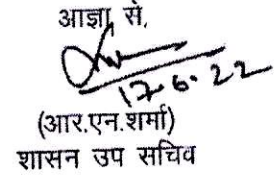 आज्ञा से,
17-6-22
(आर.एन.शर्मा)
शासन उप सचिव